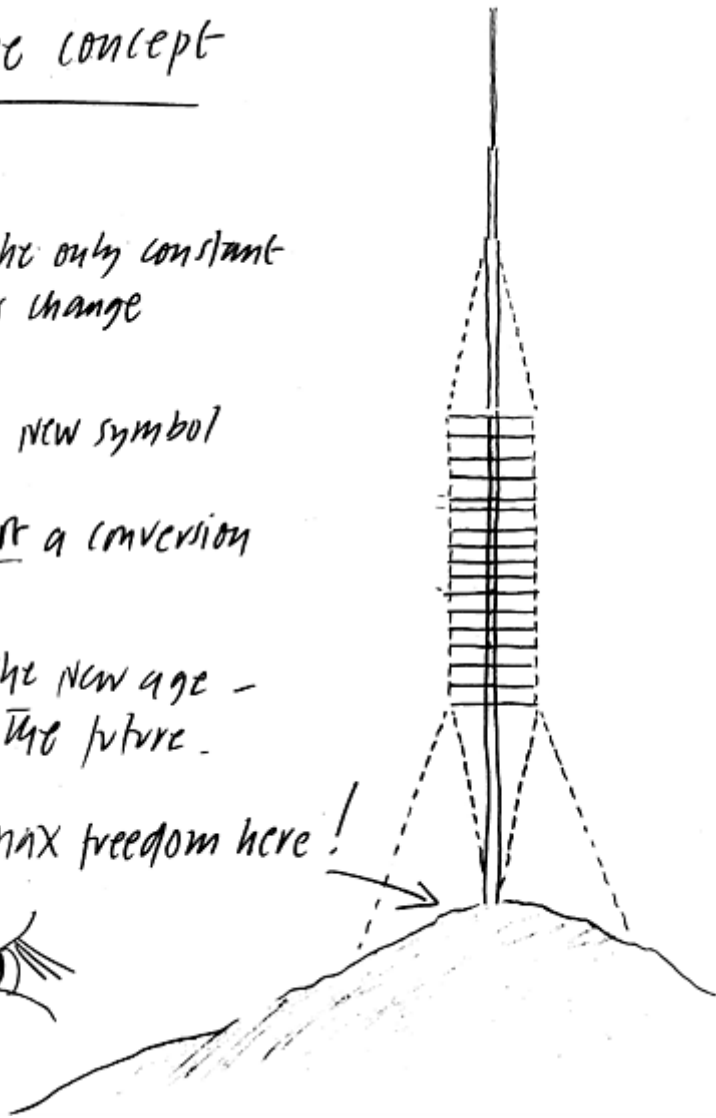 e concept
he only constant
s change
new symbol
a conversion
he new age –
The future.
max freedom here!